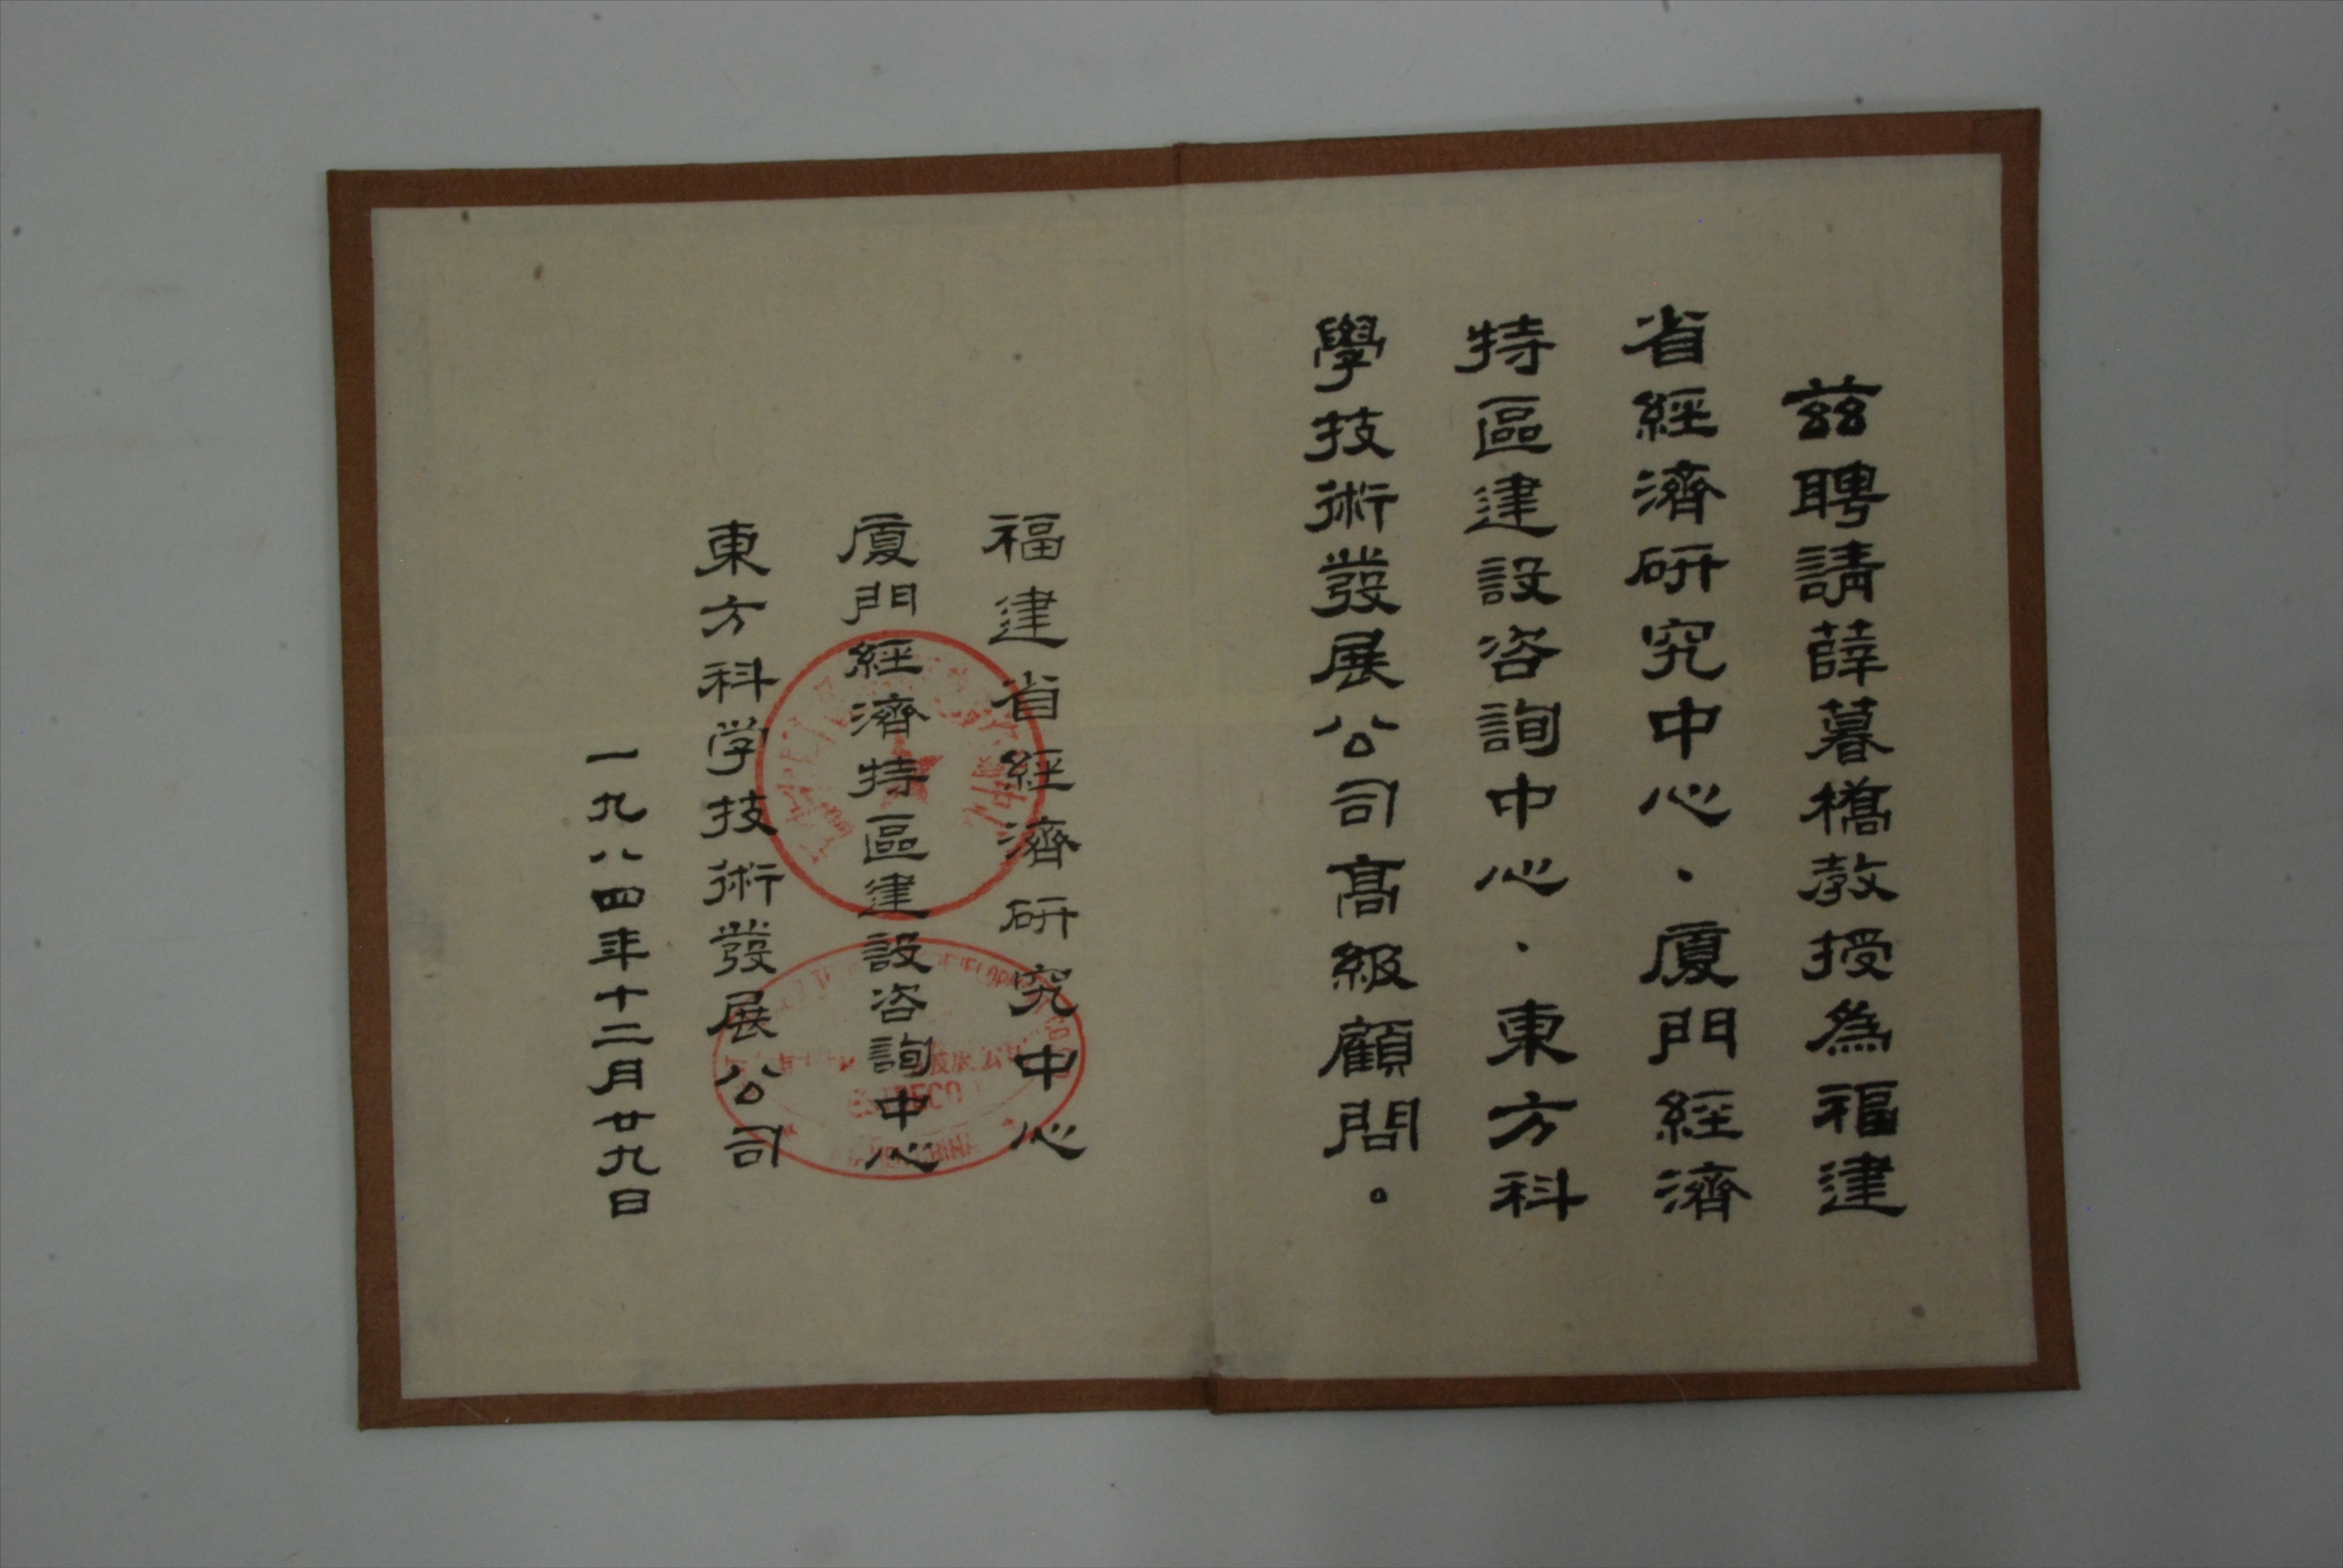 茲聘請薛暮橋教授為福建
省經濟研究中心、廈門經濟
特區建設咨詢中心、東方科
學技術發展公司高級顧問。
福建省經濟研究中心
廈門經濟特區建設咨詢中心
東方科学技術發展公司
一九八四年十二月廿九日